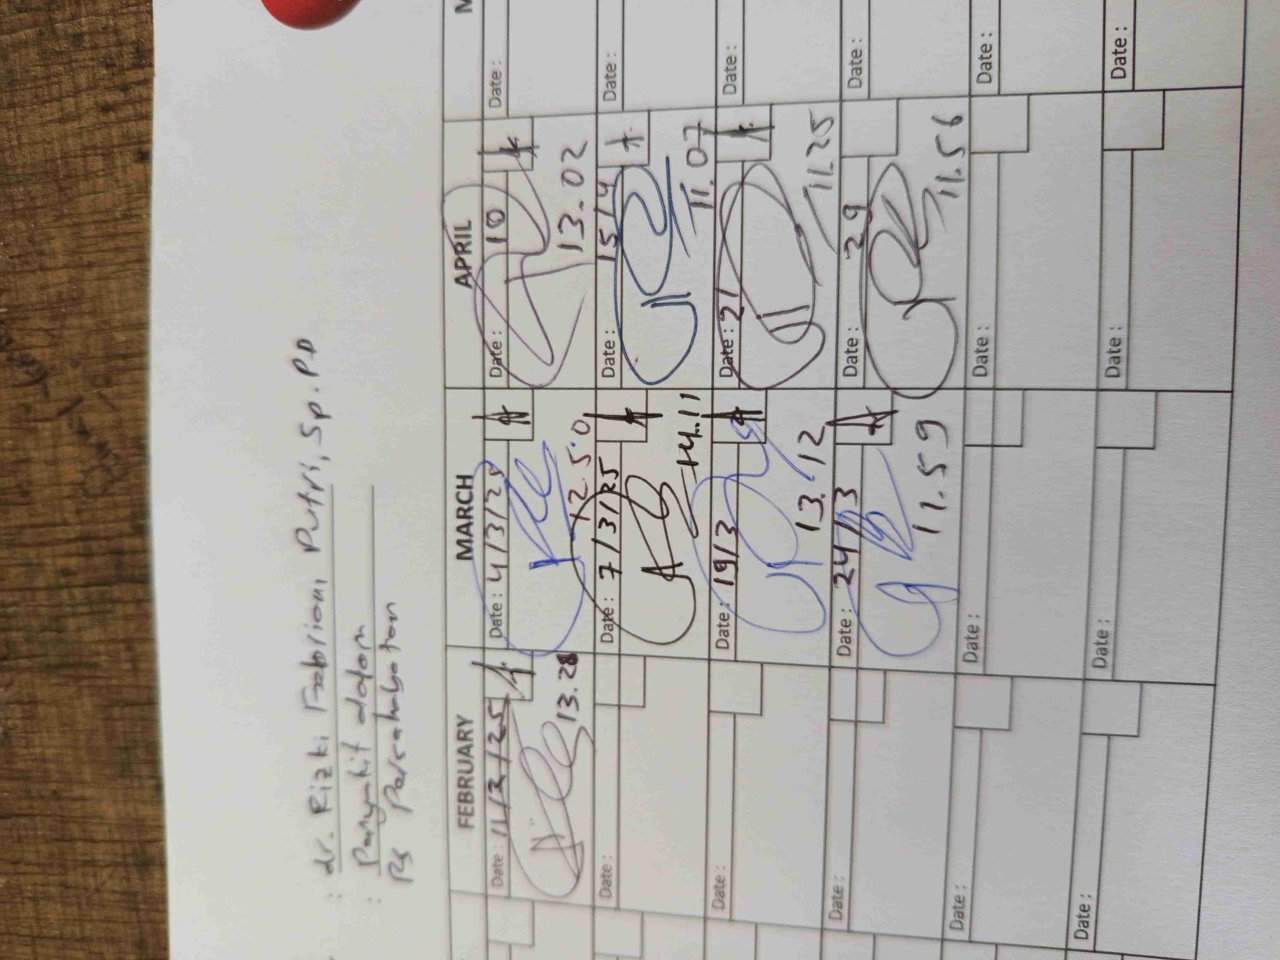 : dr. Rizki Febriani Putri, Sp. PD
Penyakit dalam
: RS Persahabatan
FEBRUARY MARCH APRIL M
Date : 11/2/25 Date : 4/3/25 Date : 10 Date :
13.28 12.50 13.02
Date : Date : 7/3/25 Date : 15/4 Date :
14.11 11.07
Date : Date : 19/3 Date : 21 Date :
13.12 11.25
Date : Date : 24/3 Date : 29 Date :
11.59 11.56
Date : Date : Date : Date :
Date : Date : Date : Date :